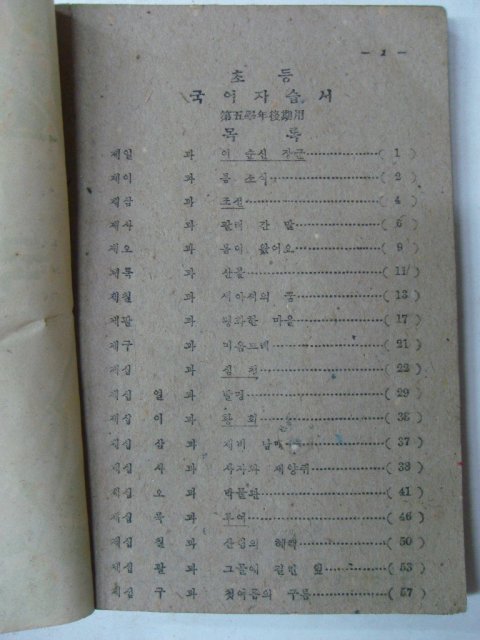 - 1 -
초 등
국 어 자 습 서
第五學年後期用
목 록
제일 과 이 순신 장군 ( 1 )
제이 과 봄 소식 ( 2 )
제삼 과 조선 ( 4 )
제사 과 팔려 간 말 ( 6 )
제오 과 봄이 왔어요 ( 9 )
제륙 과 산울 ( 11 )
제칠 과 의 종 ( 13 )
제팔 과 평화한 마을 ( 17 )
제구 과 ( 21 )
제십 과 ( 22 )
제십 일 과 발명 ( 29 )
제십 이 과 황 희 ( 36 )
제십 삼 과 제비 남매 ( 37 )
제십 사 과 사자와 새앙쥐 ( 38 )
제십 오 과 박물관 ( 41 )
제십 륙 과 부여 ( 46 )
제십 칠 과 산림의 혜택 ( 50 )
제십 팔 과 그물에 걸린 ( 53 )
제십 구 과 첫여름의 구름 ( 57 )